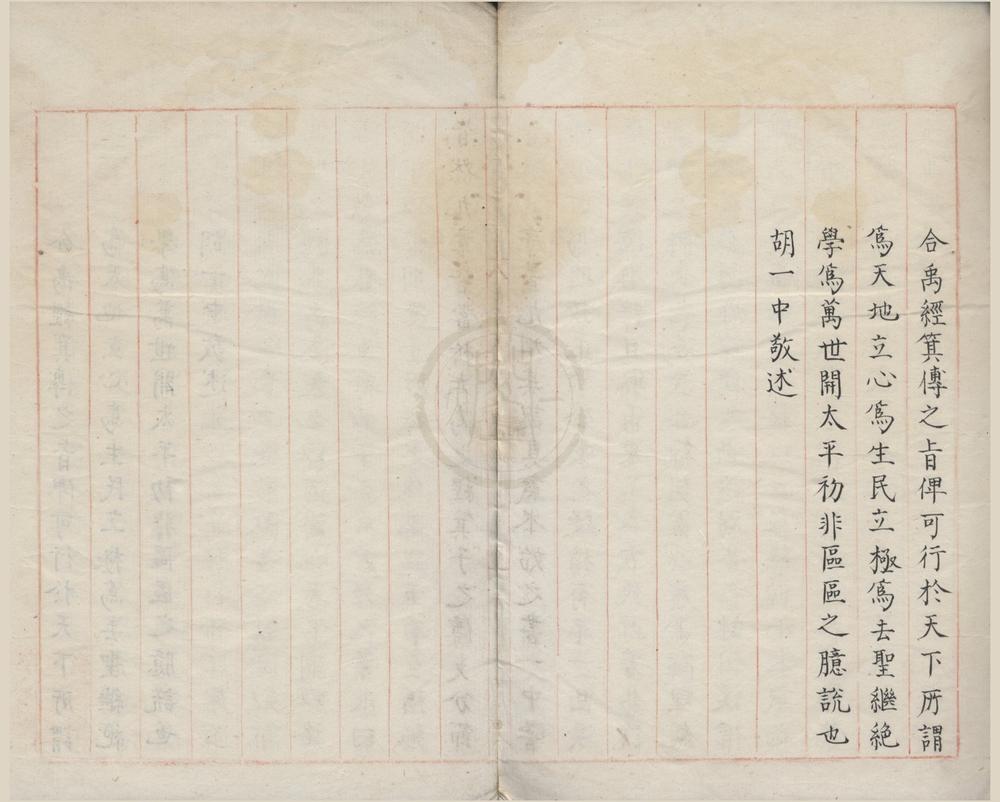 合禹經箕傳之旨俾可行於天下所謂
爲天地立心爲生民立極爲去聖繼絶
學爲萬世開太平初非區區之臆説也
胡一中敬述